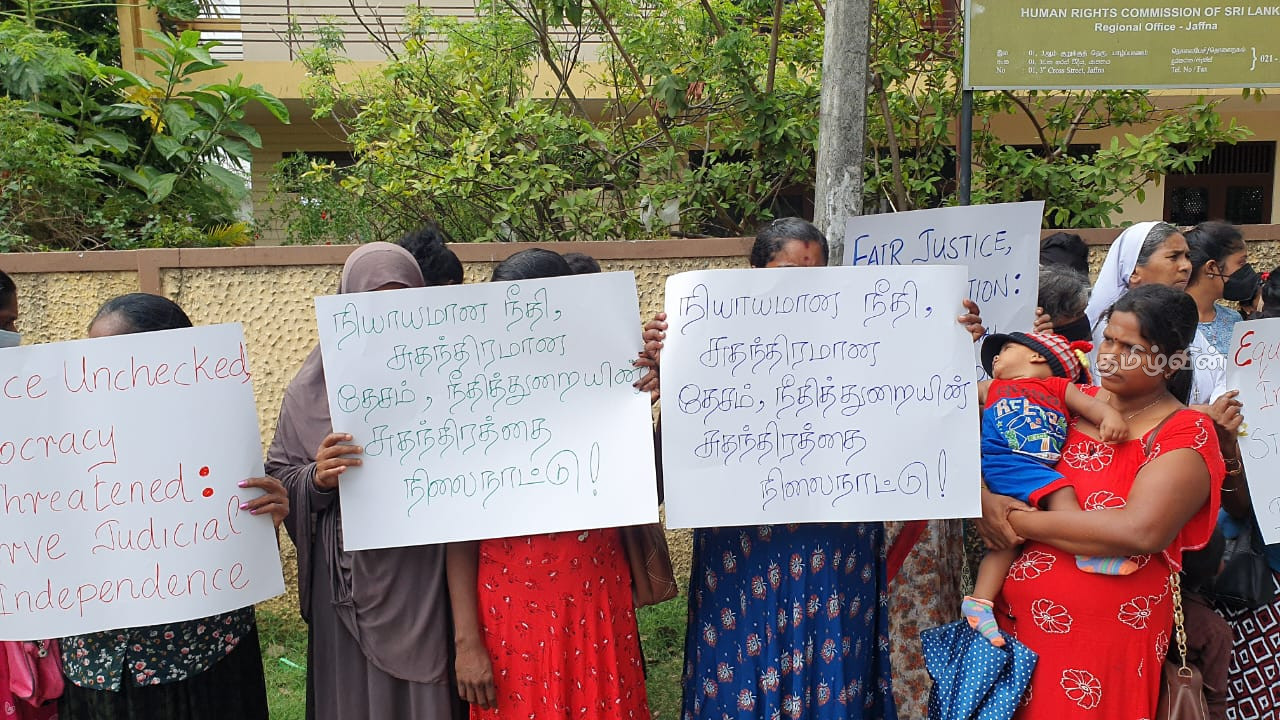 HUMAN RIGHTS COMMISSION OF SRI LANK
Regional Office - Jaffna
இல : 01, 3ஆம் குறுக்குத் தெரு, யாழ்ப்பாணம்
No : 01, 3rd Cross Street, Jaffna
தொலைபேசி/தொலைநகல்
Tel. No / Fax
021 -
ce Unchecked,
ocracy
Threatened:
erve Judicial
Independence
நியாயமான நீதி,
சுதந்திரமான
தேசம், நீதித்துறையின்
சுதந்திரத்தை
நிலைநாட்டு!
நியாயமான நீதி,
சுதந்திரமான
தேசம், நீதித்துறையின்
சுதந்திரத்தை
நிலைநாட்டு!
FAIR JUSTICE,
TION:
தமிழ்வின்
Equ
I
ST